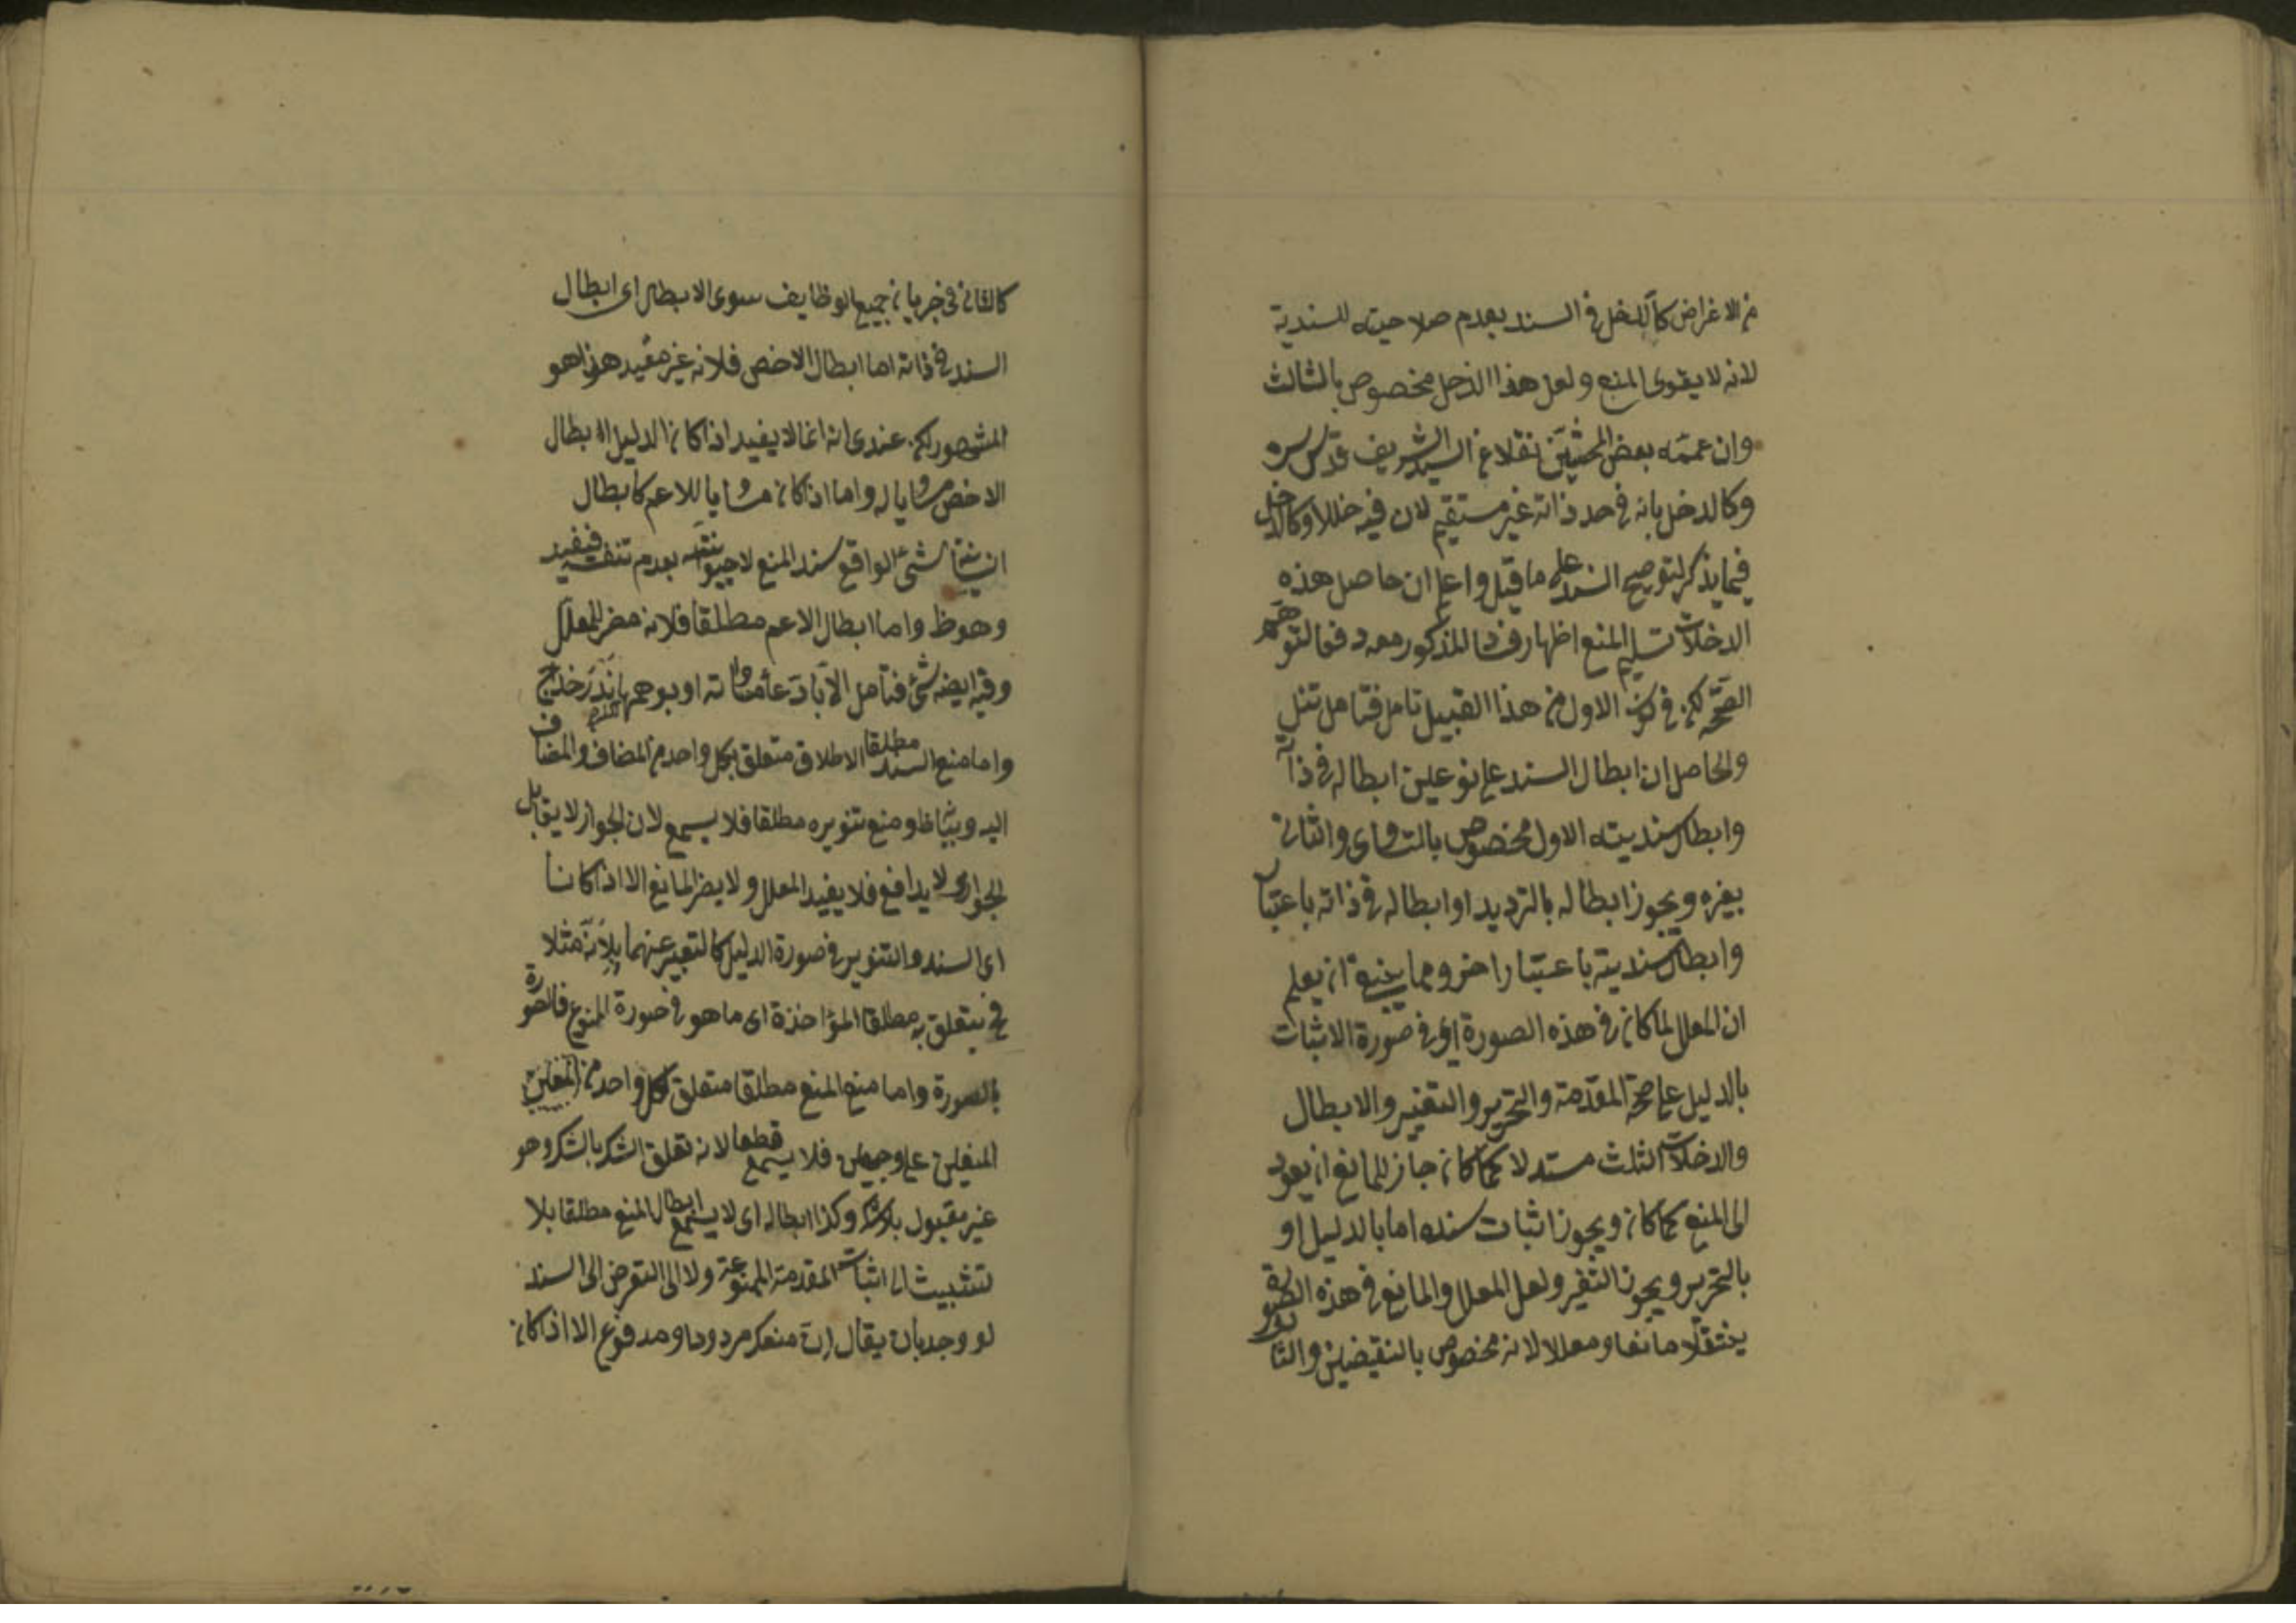 من الاغراض كالدخل في السند بعدم صلاحيته للسندية
لانه لا يقوى المنع ولعل هذا الدخل مخصوص بالثالث
وان عممه بعض المحشين نقلا عن السيد الشريف قدس سره
وكالدخل بانه في حد ذاته غير مستقيم لان فيه خللا وكالدخل
فيما يذكر لتوضيح السند على ما قيل واعلم ان حاصل هذه
الدخلات تسليم المنع اظهار فساد المذكور معه دفعا لتوهم
الصحة لكن في كون الاول من هذا القبيل تامل فتامل تنل
والحاصل ان ابطال السند على نوعين ابطاله في ذاته
وابطال سنديته الاول مخصوص بالمساوى والثانى
بغيره ويجوز ابطاله بالترديد او ابطاله في ذاته باعتبار
وابطال سنديته باعتبار اخر ومما ينبغى ان يعلم
ان المعلل لما كان في هذه الصورة اى في صورة الاثبات
بالدليل على صحة المقدمة والتحرير والتغيير والابطال
والدخلات الثلث مستدلا كما كان جاز للمانع ان يعود
الى المنع كما كان ويجوز اثبات سنده اما بالدليل او
بالتحرير ويجوز التغير ولعل المعلل والمانع في هذه الصورة
ينتقلا مانعا ومعللا لانه مخصوص بالنقيضين والثا
كالثانى في جريان جميع الوظايف سوى الابطال اى ابطال
السند في ذاته اما ابطال الاخص فلانه غير مفيد هذا هو
المشهور لكن عندى انه انما لا يفيد اذا كان الدليل الابطال
الاخص مساويا له واما اذا كان مساويا للاعم كابطال
شئ الواقع سند المنع لا بعدم تنفسه فيفيد
وهو ظ واما ابطال الاعم مطلقا فلانه مضر للمعلل
وفيه ايضه شئ فتامل الا
واما منع السند مطلقا الاطلاق متعلق بكل واحد من المضاف والمضاف
اليه ومنع تنويره مطلقا فلا يسمع لان الجواز لا يقابل
الجواز اى لا يدافع فلا يفيد المعلل ولا يضر المانع الا اذا كانا
اى السند والتنوير في صورة الدليل كالتعبير عنهما بلانه مثلا
فح يتعلق به مطلقا المؤاخذة اى ما هو في صورة المنوع فالصورة
بالصورة واما منع المنع مطلقا متعلق لكل واحد من المنعين
المنعين على وجهين فلا يسمع قطعا لانه تعلق الشك بالشك وهو
غير مقبول بلا شك وكذا ابطاله اى لا يسمع ابطال المنع مطلقا بلا
تشبيث الى اثبات المقدمة الممنوعة ولا الى التعرض الى السند
لو وجد بان يقال ان منعك مردود او مدفوع الا اذا كان